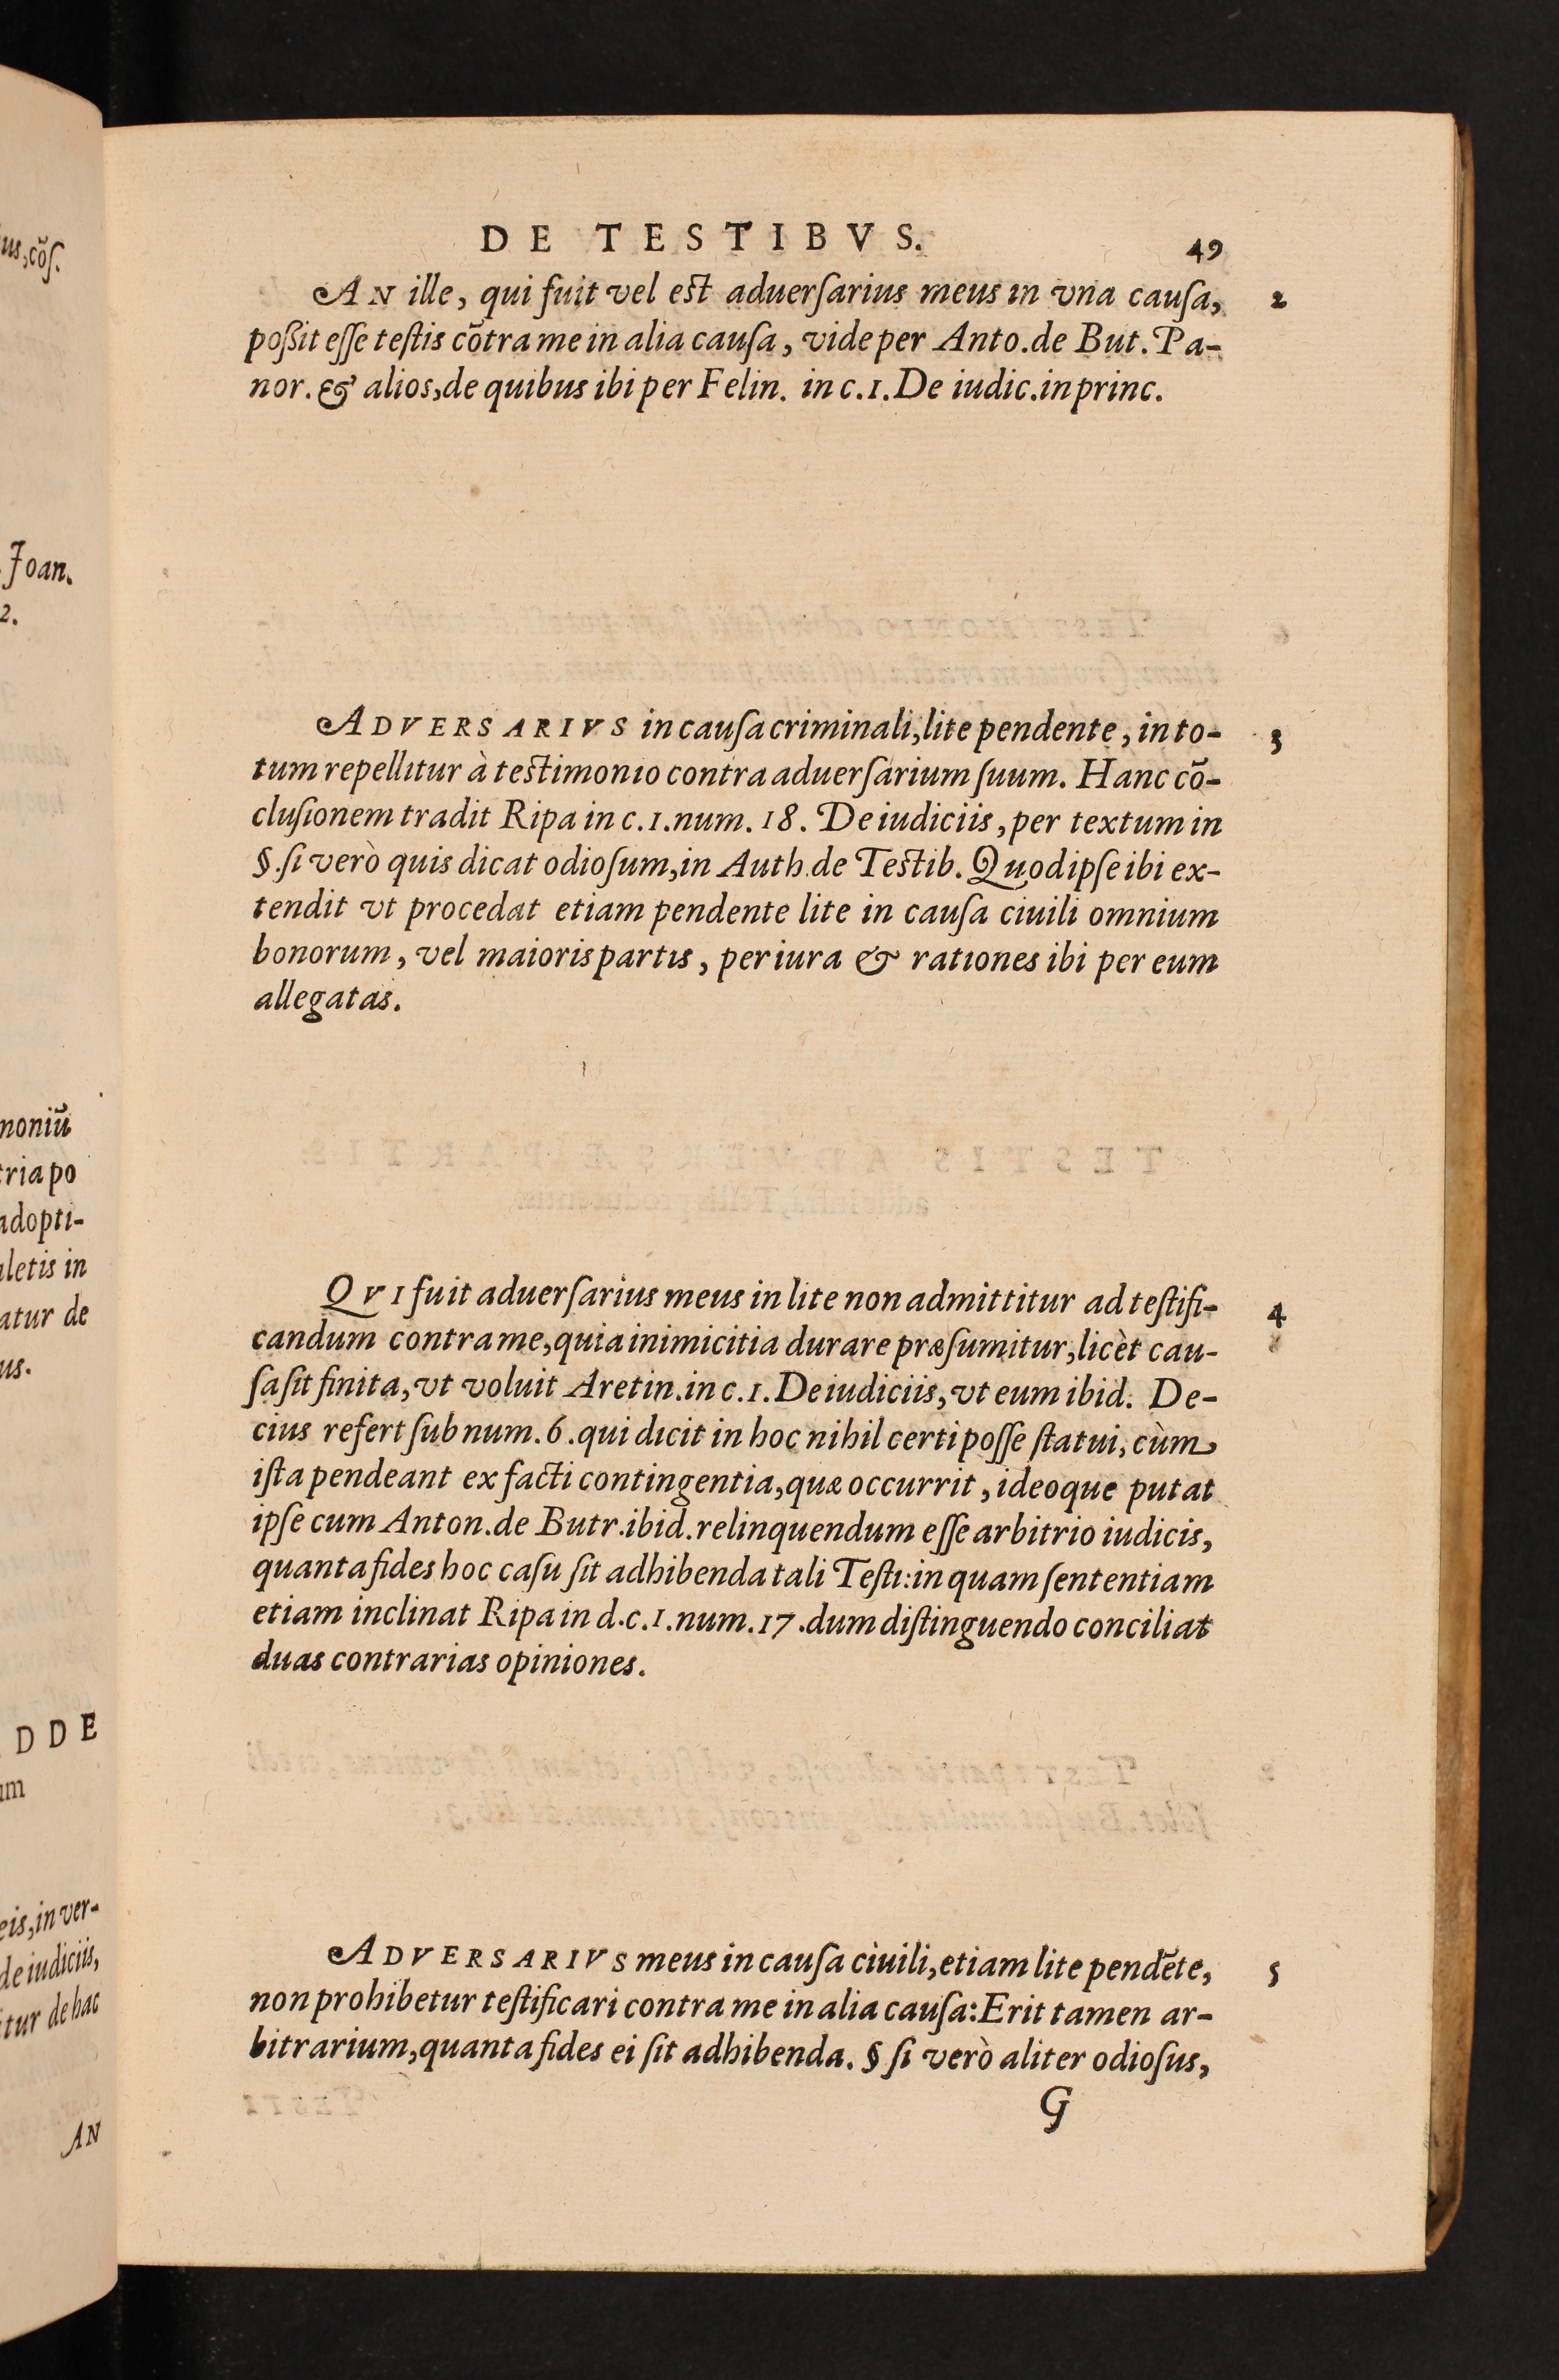 DE TESTIBVS.
49
AN ille, qui fuit vel est aduersarius meus in vna causa,
2
poßit esse testis cõtra me in alia causa, vide per Anto.de But. Pa-
nor. & alios,de quibus ibi per Felin. in c.1.De iudic.in princ.
ADVERSARIVS in causa criminali,lite pendente, in to-
3
tum repellitur à testimonio contra aduersarium suum. Hanc cõ-
clusionem tradit Ripa in c.1.num.18. De iudiciis, per textum in
§.si verò quis dicat odiosum,in Auth.de Testib. Quod ipse ibi ex-
tendit vt procedat etiam pendente lite in causa ciuili omnium
bonorum, vel maioris partis, per iura & rationes ibi per eum
allegatas.
QVI fuit aduersarius meus in lite non admittitur ad testifi-
4
candum contra me,quia inimicitia durare præsumitur,licèt cau-
sa sit finita,vt voluit Aretin.in c.1.De iudiciis,vt eum ibid. De-
cius refert sub num.6.qui dicit in hoc nihil certi posse statui, cùm
ista pendeant ex facti contingentia,quæ occurrit, ideoque putat
ipse cum Anton.de Butr.ibid.relinquendum esse arbitrio iudicis,
quanta fides hoc casu sit adhibenda tali Testi:in quam sententiam
etiam inclinat Ripa in d.c.1.num.17.dum distinguendo conciliat
duas contrarias opiniones.
ADVERSARIVS meus in causa ciuili,etiam lite pendẽte,
5
non prohibetur testificari contra me in alia causa:Erit tamen ar-
bitrarium,quanta fides ei sit adhibenda. § si verò aliter odiosus,
G
us,cõs.
Joan.
2.
moniũ
tria po
adopti-
aletis in
atur de
us.
DDE
um
eis,in ver-
de iudiciis,
itur de hac
AN